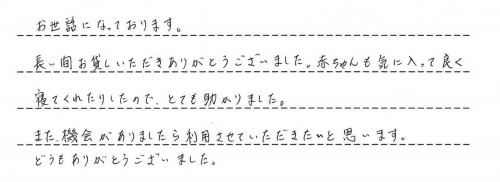 お世話になっております。
長い間お貸しいただきありがとうございました。赤ちゃんも気に入って良く
寝てくれたりしたので、とても助かりました。
また、機会がありましたら利用させていただきたいと思います。
どうもありがとうございました。